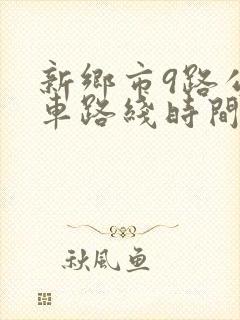 新鄉市9路公
車路綫時間
秋風魚